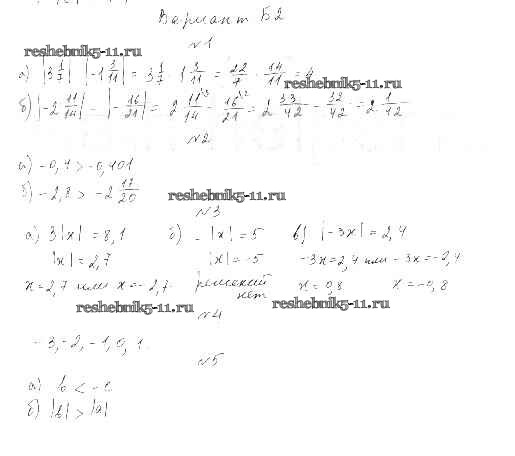 Вариант Б2
№1
reshebnik5-11.ru
а) |3 1/7| · |-1 3/11| = 3 1/7 · 1 3/11 = 22/7 · 14/11 = 4
б) |-2 11/14| - |-16/21| = 2 11/14 - 16/21 = 2 33/42 - 32/42 = 2 1/42
№2
а) -0,4 > -0,401
б) -2,8 > -2 17/20
reshebnik5-11.ru
№3
а) 3|x| = 8,1 б) -|x| = 5 в) |-3x| = 2,4
|x| = 2,7 |x| = -5 -3x = 2,4 или -3x = -2,4
x = 2,7 или x = -2,7. решений нет x = 0,8 x = -0,8
reshebnik5-11.ru reshebnik5-11.ru
№4
-3, -2, -1, 0, 1.
№5
а) b < -c
б) |b| > |a|